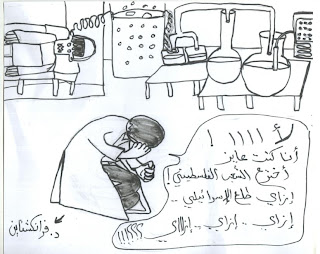 لأ ا ا ا ا !
أنا كنت عايز
أخترع الشعب الفلسطيني !
إزاي طلع الإسرائيلي ..
إزاي .. إزاي .. إزااي
د. فرانكشتاين